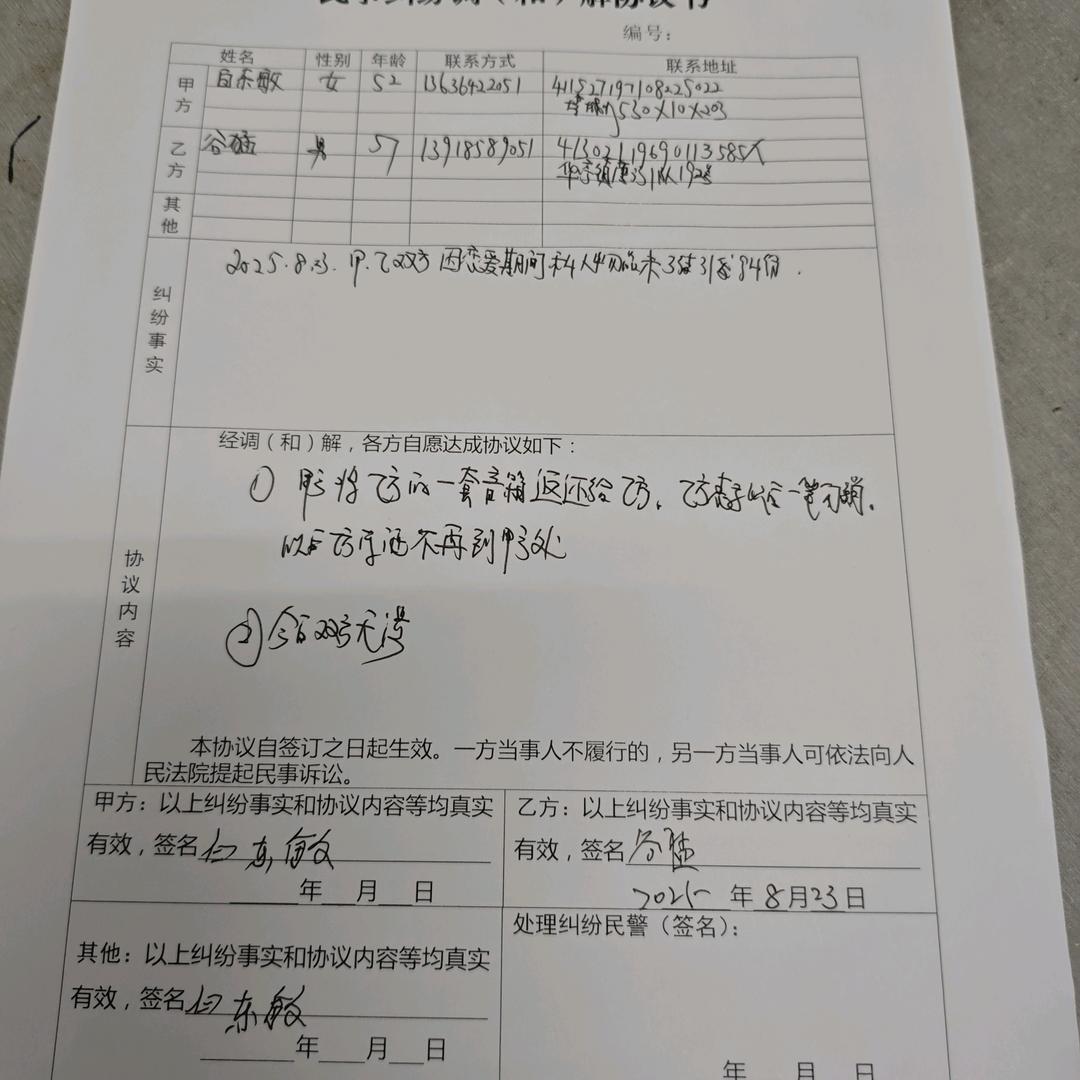 民事纠纷调（和）解协议书
编号：
姓名 性别 年龄 联系方式 联系地址
甲方 白东敏 女 52 13636422051 411527197108225022
530 10 203
乙方 谷猛 男 57 13918589051 41302119690113585X
华亭镇唐 192号
其他
纠纷事实
2025.8.23. 甲.乙双方因恋爱期间私人物品未了结引发纠纷.
协议内容
经调（和）解，各方自愿达成协议如下：
① 甲方将乙方的一套音箱返还给乙方，乙方 一笔勾销，
以后乙方 不再到甲方处
② 今后双方无涉
本协议自签订之日起生效。一方当事人不履行的，另一方当事人可依法向人
民法院提起民事诉讼。
甲方：以上纠纷事实和协议内容等均真实
有效，签名 白东敏
年 月 日
乙方：以上纠纷事实和协议内容等均真实
有效，签名 谷猛
2025 年 8 月 23 日
其他：以上纠纷事实和协议内容等均真实
有效，签名 白东敏
年 月 日
处理纠纷民警（签名）：
年 月 日